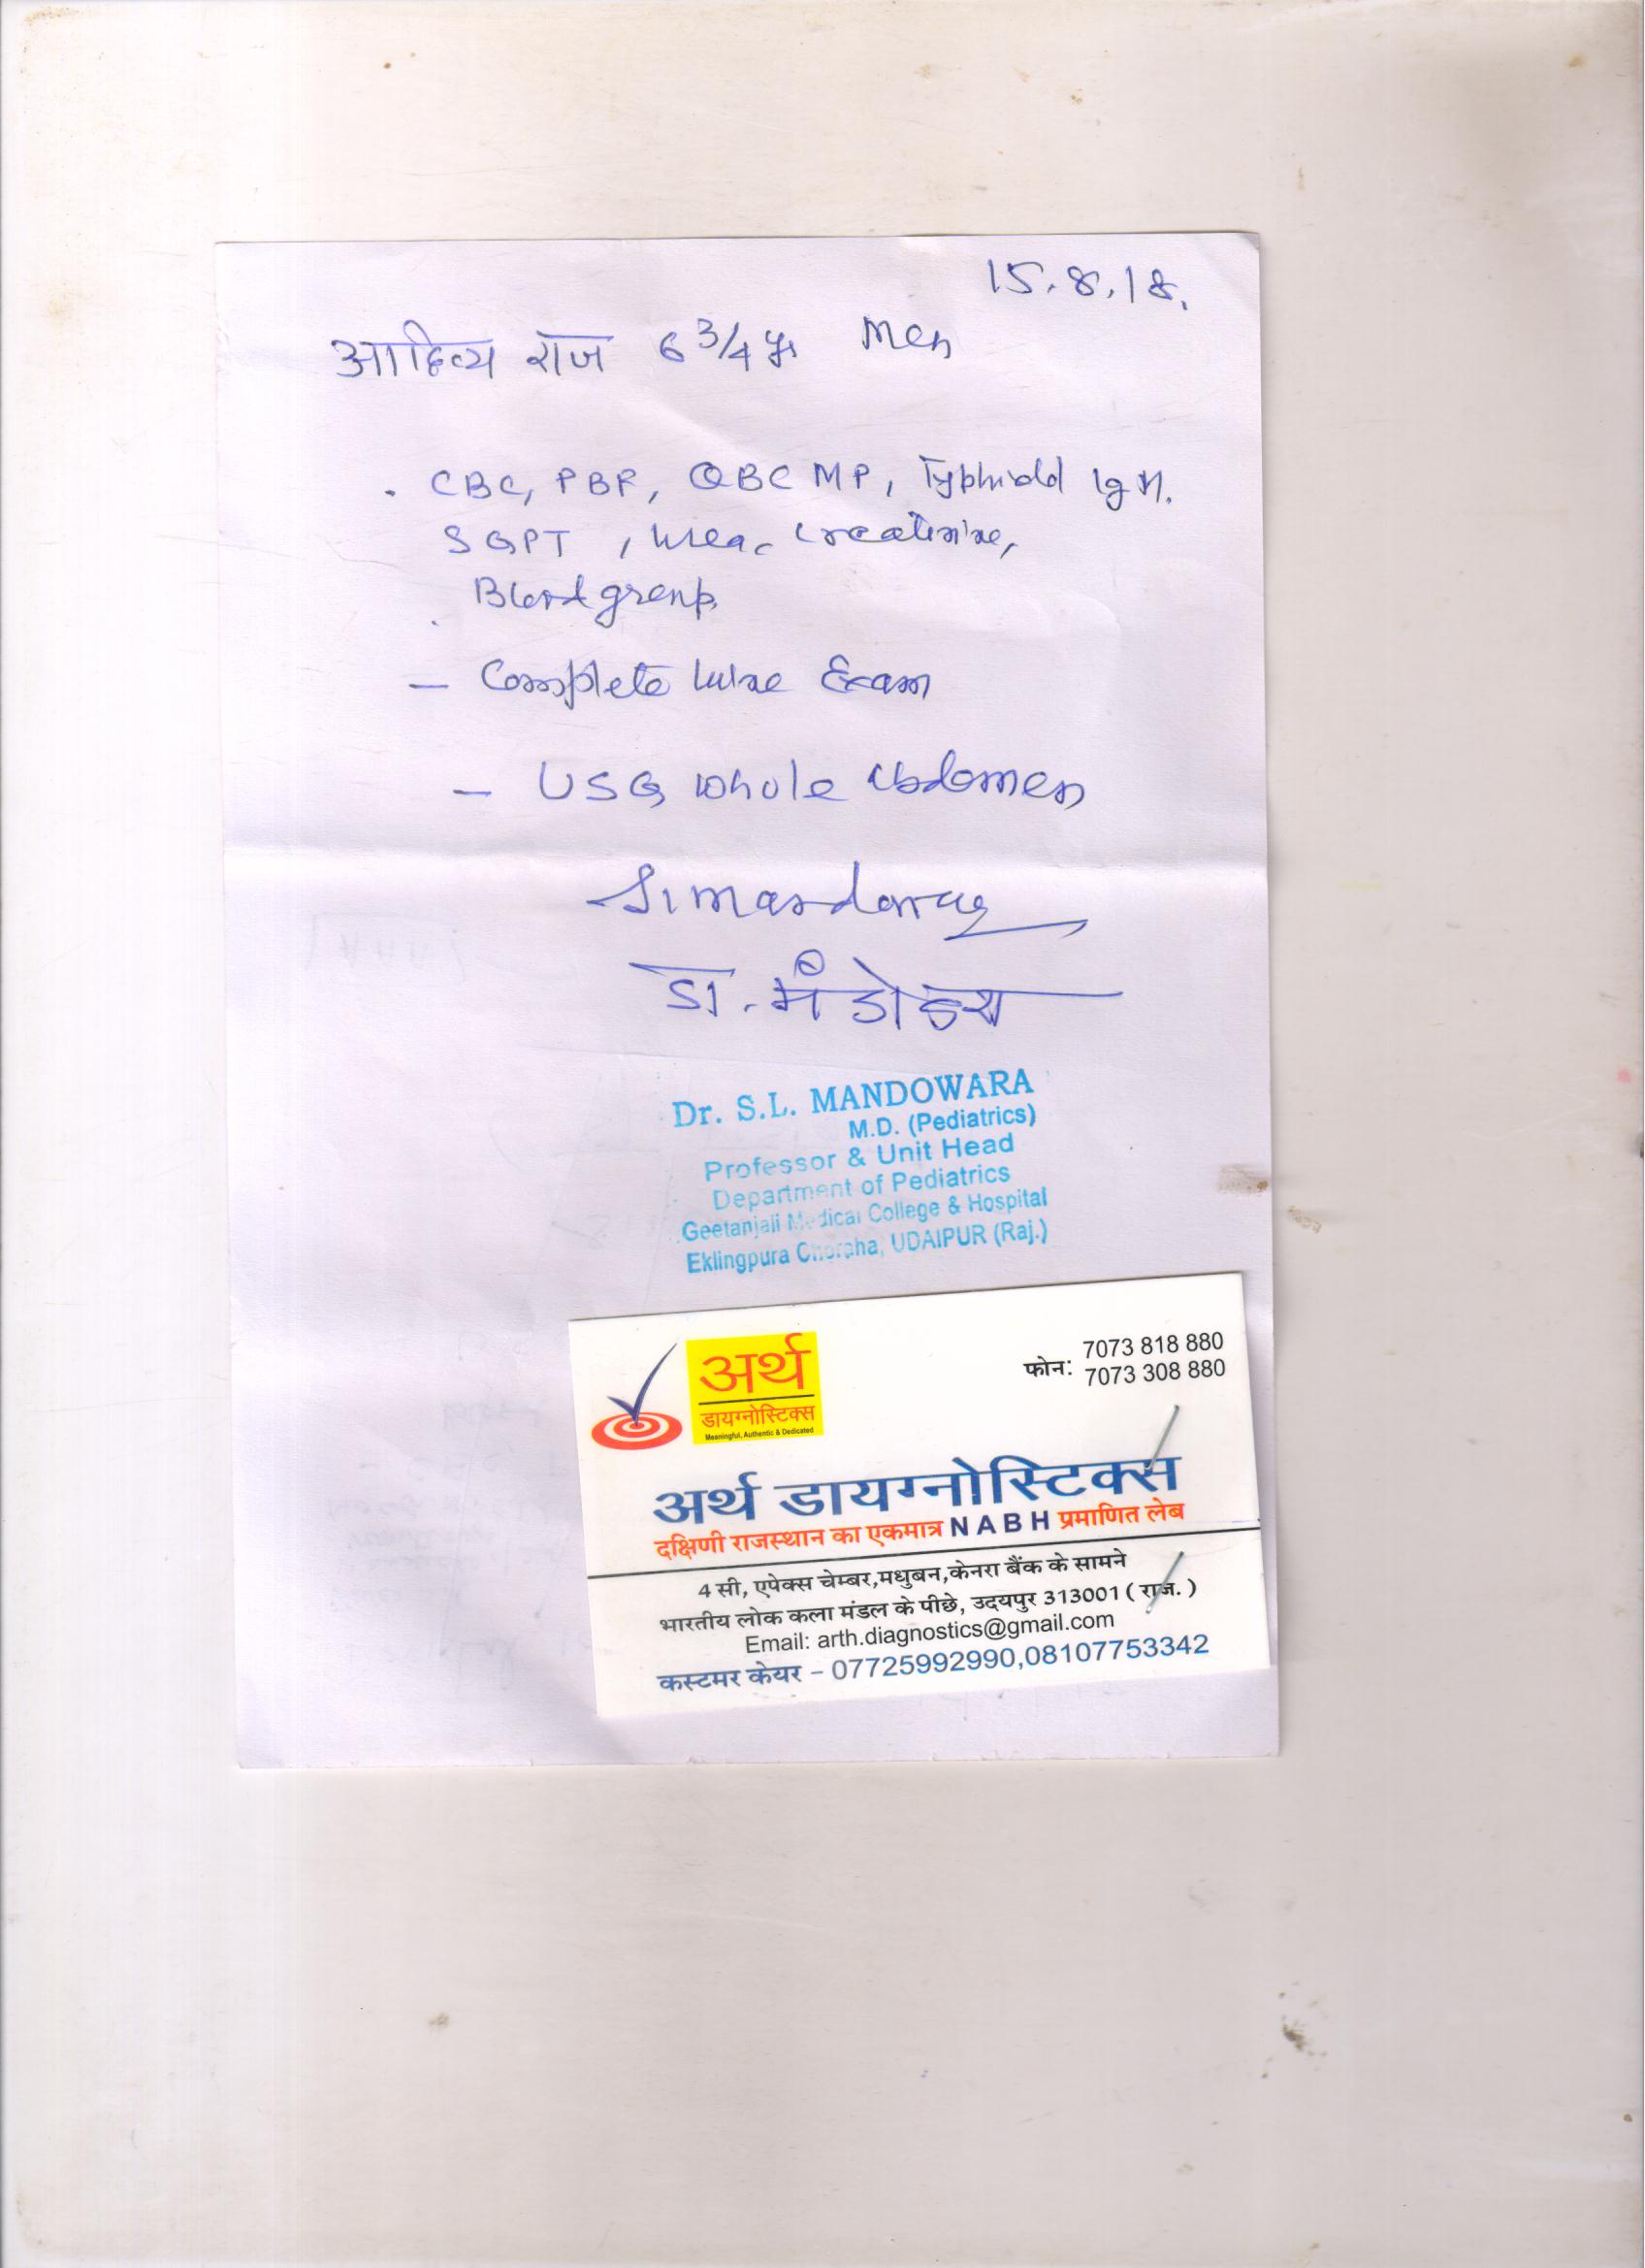 15.8.18.
आदित्य राज 6 3/4 yr Mch
. CBC, PBF, QBC MP, Typhidd IgM.
SGPT , Urea, Creatinine,
Blood group.
– Complete Urine Exam
– USG whole abdomen
Slmandowara
डा. मंडोवरा
Dr. S.L. MANDOWARA
M.D. (Pediatrics)
Professor & Unit Head
Department of Pediatrics
Geetanjali Medical College & Hospital
Eklingpura Choraha, UDAIPUR (Raj.)
अर्थ
डायग्नोस्टिक्स
Meaningful, Authentic & Dedicated
फोन: 7073 818 880
7073 308 880
अर्थ डायग्नोस्टिक्स
दक्षिणी राजस्थान का एकमात्र NABH प्रमाणित लेब
4 सी, एपेक्स चेम्बर,मधुबन,केनरा बैंक के सामने
भारतीय लोक कला मंडल के पीछे, उदयपुर 313001 ( राज. )
Email: arth.diagnostics@gmail.com
कस्टमर केयर – 07725992990,08107753342